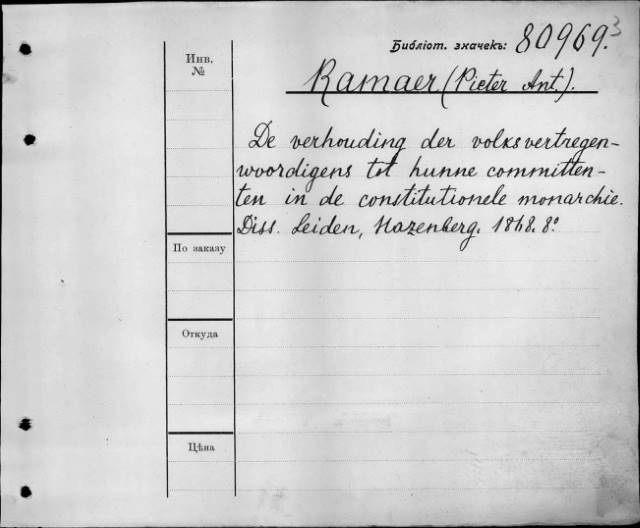 Библіот. значекъ: 80969.3
Инв.
№
Ramaer (Pieter Ant.).
De verhouding der volksvertregen-
woordigens tot hunne committen-
ten in de constitutionele monarchie.
Diss. Leiden, Hazenberg. 1868. 8º
По заказу
Откуда
Цѣна